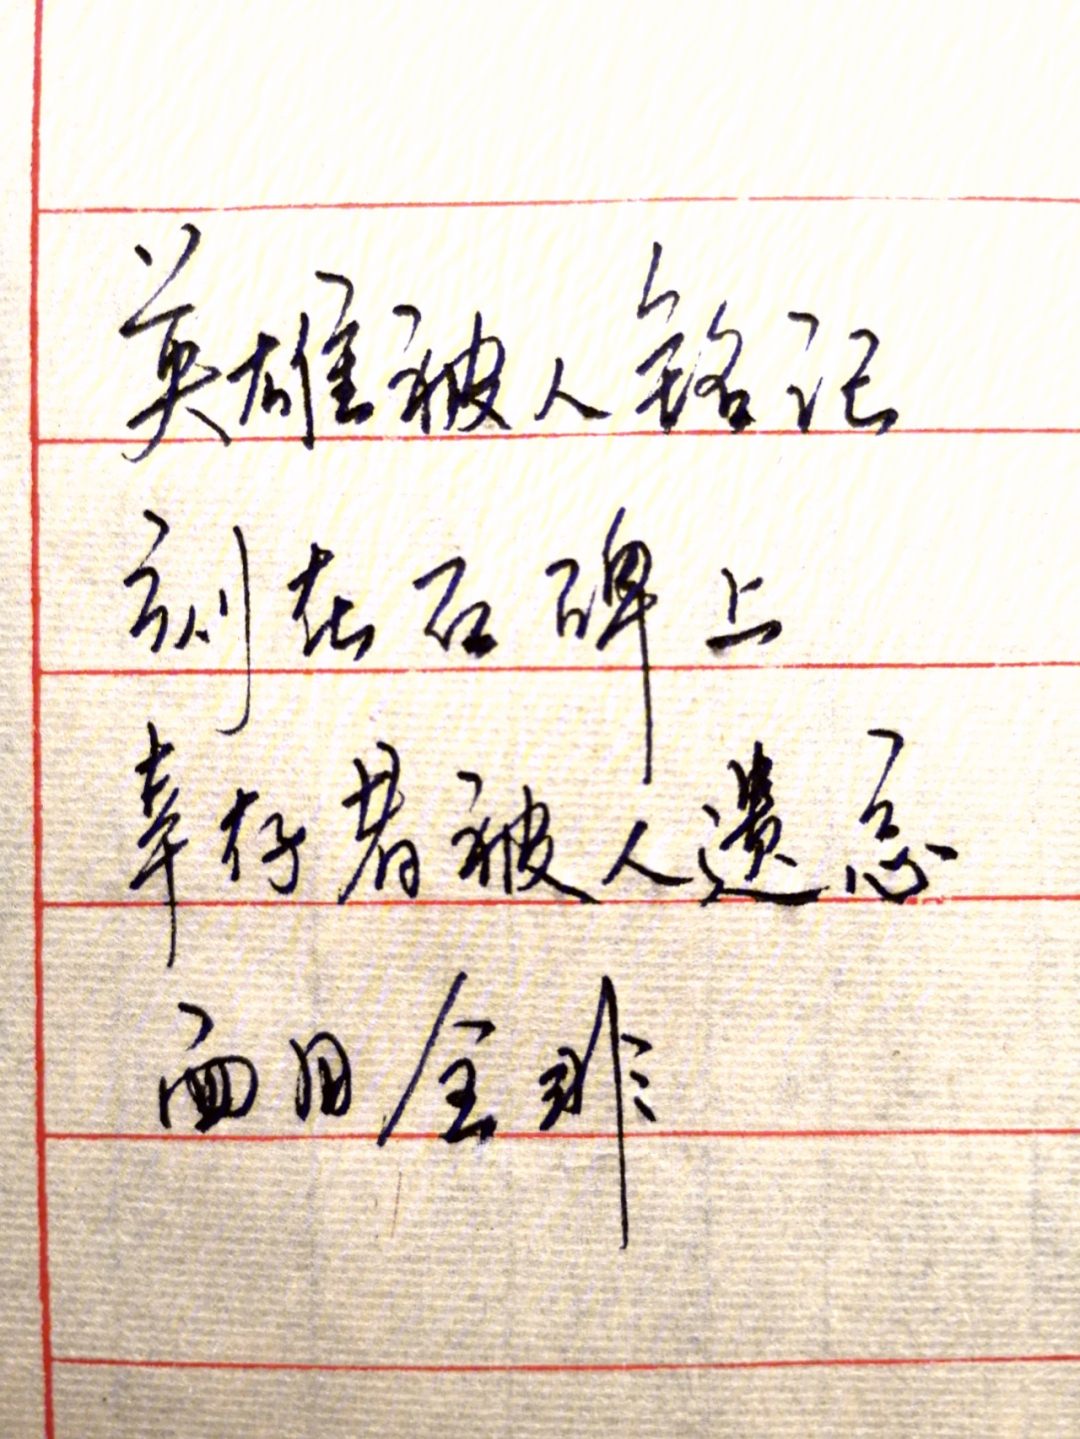 英雄被人铭记
刻在石碑上
幸存者被人遗忘
面目全非